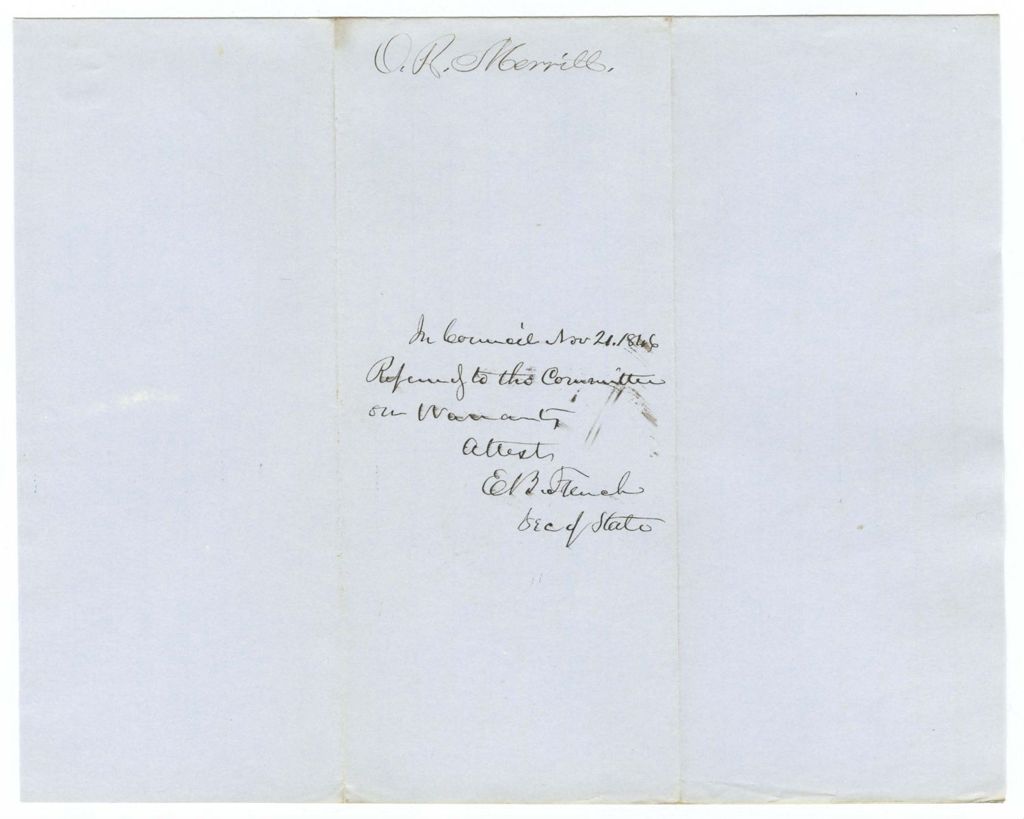 O. R. Merrill.
In Council Nov 21. 1846
Referred to the Committee
on Warrants
Attest,
E B. French
Sec of State